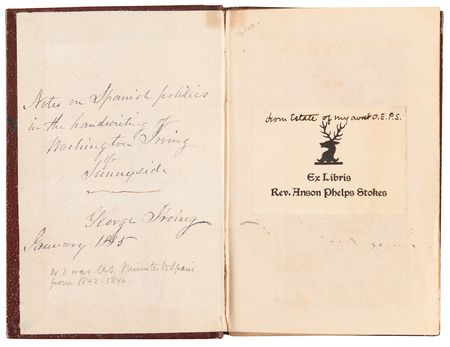 Notes on Spanish politics
in the handwriting of
Washington Irving
of
Sunnyside
George Irving
January 1885
W.I was U.S. Minister to Spain
from 1842-1846.
from Estate of my aunt O.E.P.S.
Ex Libris
Rev. Anson Phelps Stokes